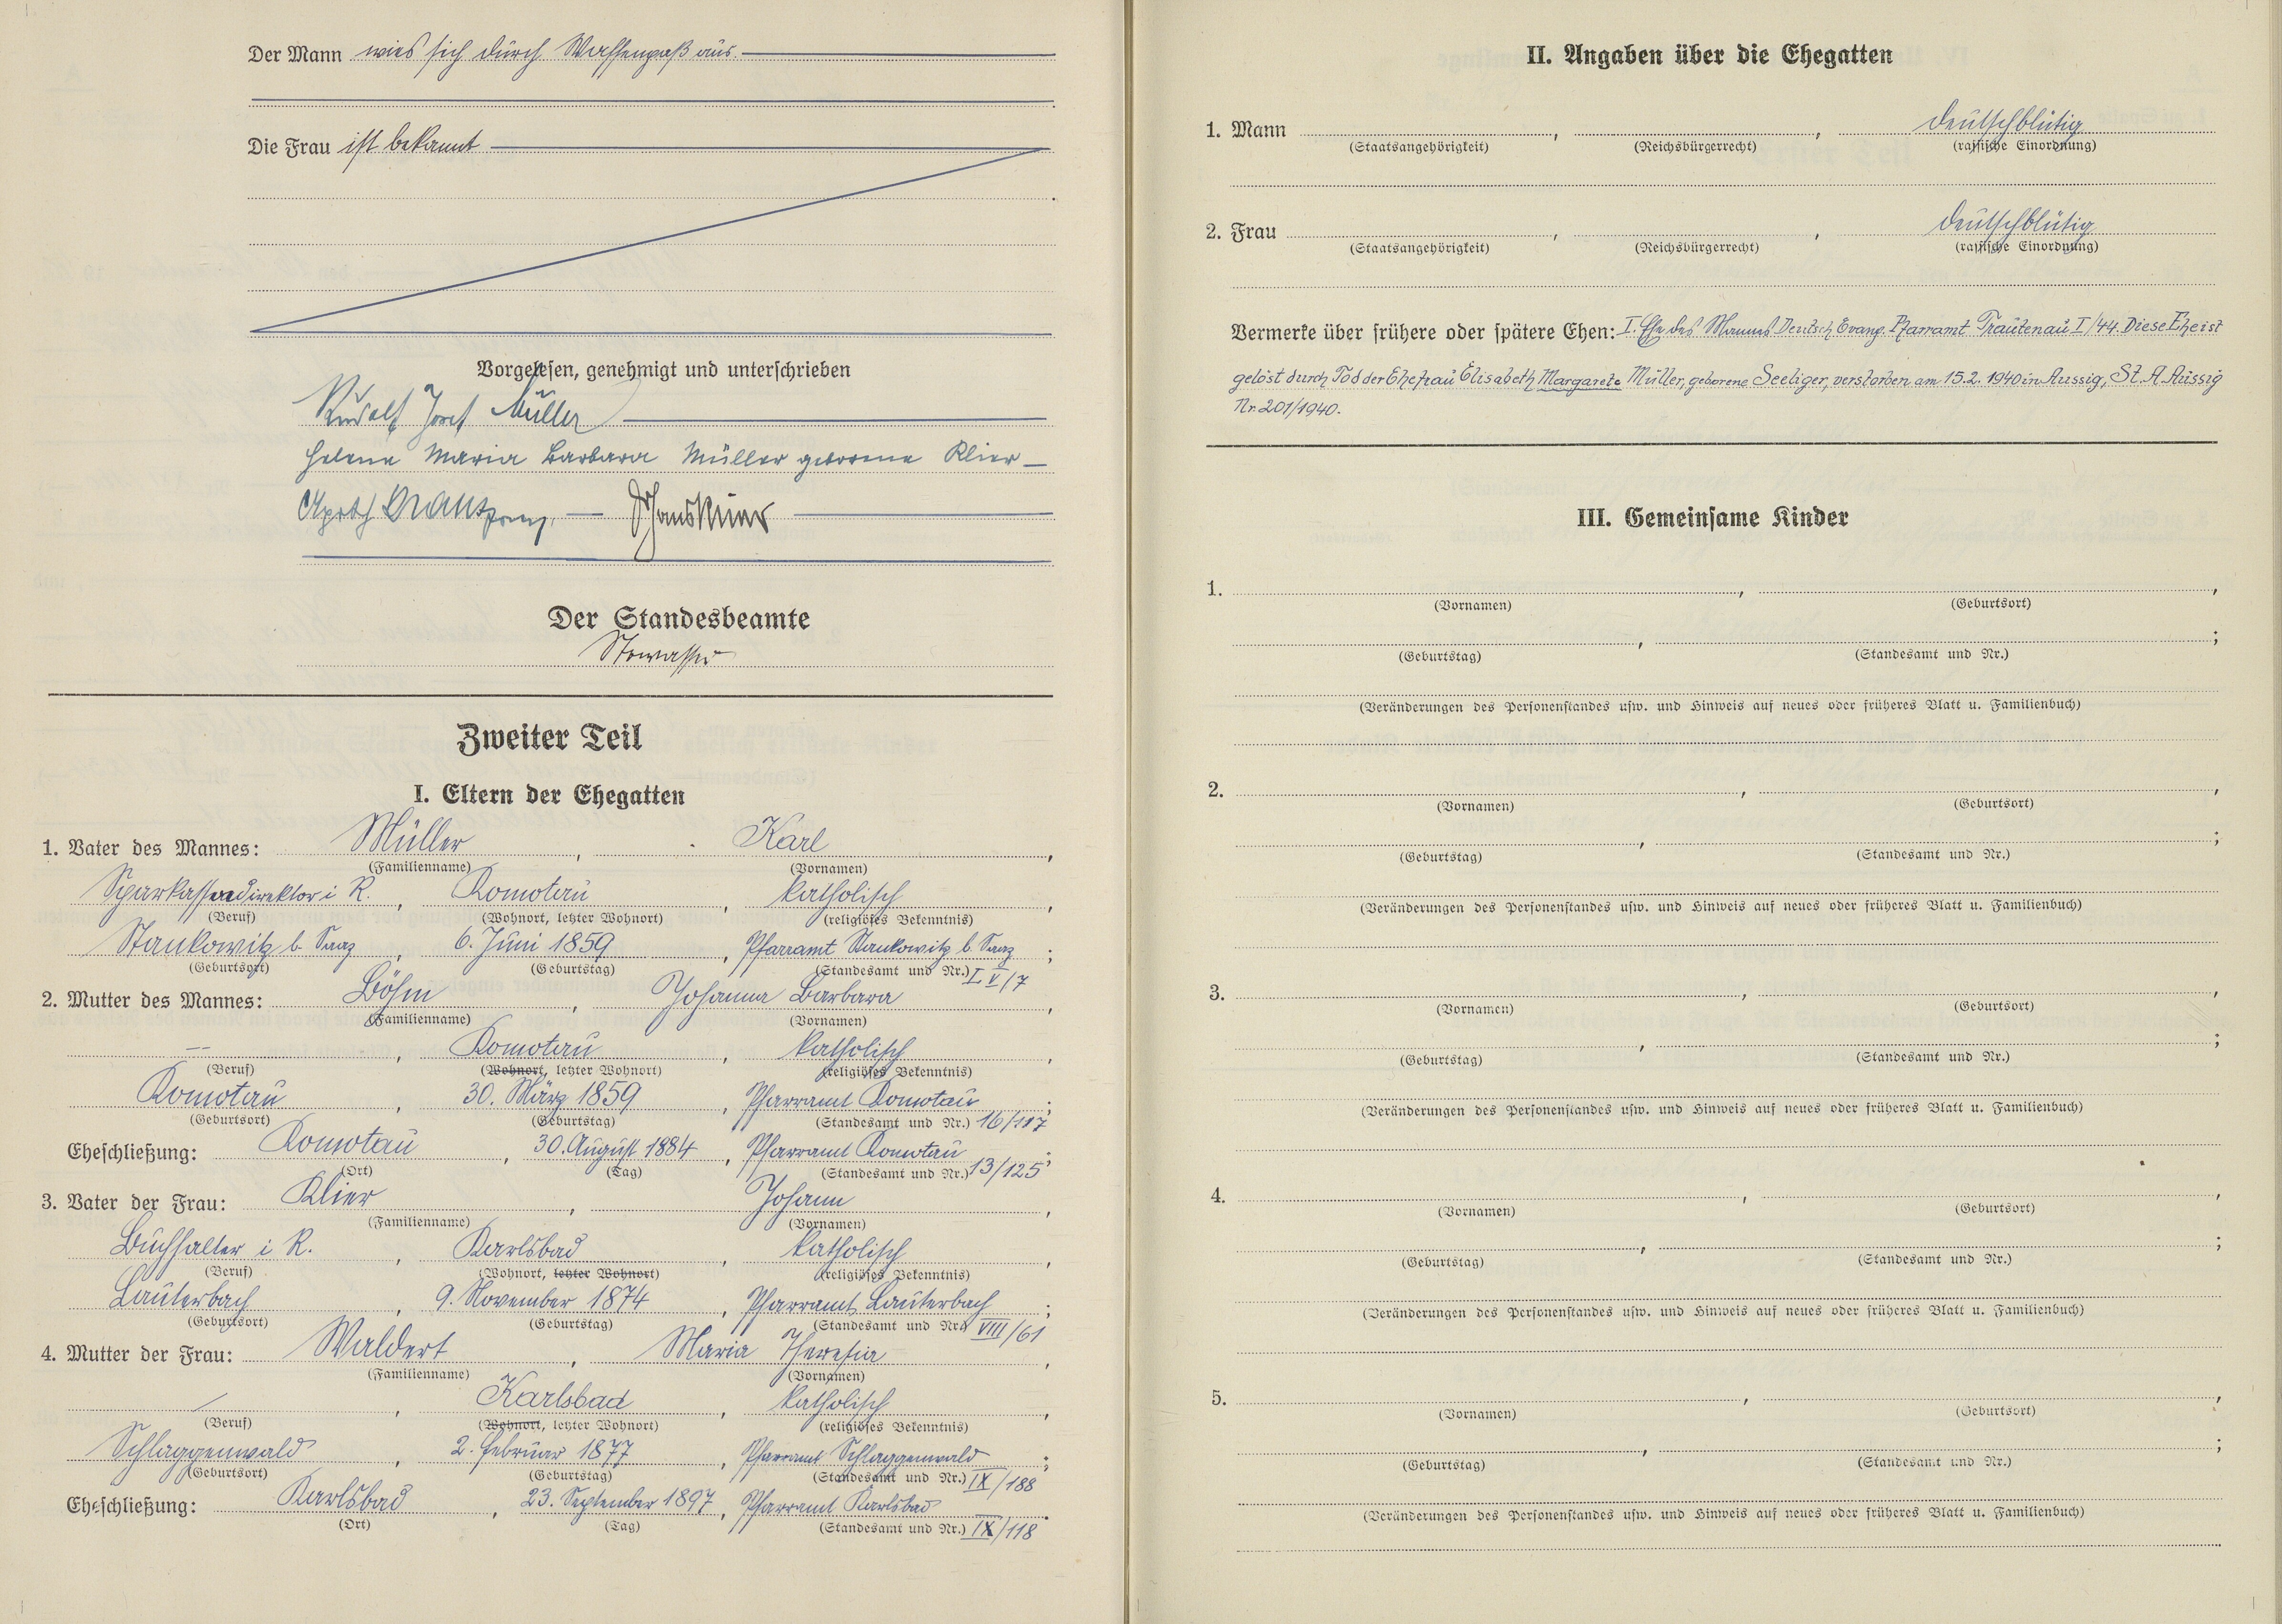 Der Mann wies sich durch Waffenpaß aus.
Die Frau ist bekannt
Vorgelesen, genehmigt und unterschrieben
Rudolf Josef Müller
Helene Maria Barbara Müller geborene Klier
Der Standesbeamte
Stowasser
Zweiter Teil
I. Eltern der Ehegatten
1. Vater des Mannes: Müller, Karl,
(Familienname) (Vornamen)
Sparkassendirektor i R., Komotau, katholisch,
(Beruf) (Wohnort, letzter Wohnort) (religiöses Bekenntnis)
Stankowitz b. Saaz, 6. Juni 1859, Pfarramt Stankowitz b. Saaz;
(Geburtsort) (Geburtstag) (Standesamt und Nr.) I V/7
2. Mutter des Mannes: Böhm, Johanna Barbara,
(Familienname) (Vornamen)
—, Komotau, katholisch,
(Beruf) (Wohnort, letzter Wohnort) (religiöses Bekenntnis)
Komotau, 30. März 1859, Pfarramt Komotau;
(Geburtsort) (Geburtstag) (Standesamt und Nr.) 16/187
Eheschließung: Komotau, 30. August 1884, Pfarramt Komotau;
(Ort) (Tag) (Standesamt und Nr.) 13/125
3. Vater der Frau: Klier, Johann,
(Familienname) (Vornamen)
Buchhalter i R., Karlsbad, katholisch,
(Beruf) (Wohnort, letzter Wohnort) (religiöses Bekenntnis)
Lauterbach, 9. November 1874, Pfarramt Lauterbach;
(Geburtsort) (Geburtstag) (Standesamt und Nr.) VIII/61
4. Mutter der Frau: Waldert, Maria Theresia,
(Familienname) (Vornamen)
—, Karlsbad, katholisch,
(Beruf) (Wohnort, letzter Wohnort) (religiöses Bekenntnis)
Schlaggenwald, 2. Februar 1877, Pfarramt Schlaggenwald;
(Geburtsort) (Geburtstag) (Standesamt und Nr.) IX/188
Eheschließung: Karlsbad, 23. September 1897, Pfarramt Karlsbad.
(Ort) (Tag) (Standesamt und Nr.) IX/118
II. Angaben über die Ehegatten
1. Mann , , deutschblütig
(Staatsangehörigkeit) (Reichsbürgerrecht) (rassische Einordnung)
2. Frau , , deutschblütig
(Staatsangehörigkeit) (Reichsbürgerrecht) (rassische Einordnung)
Vermerke über frühere oder spätere Ehen: I. Ehe des Mannes Deutsch Evang. Pfarramt Trautenau I/44. Diese Ehe ist
gelöst durch Tod der Ehefrau Elisabeth Margarete Müller, geborene Seeliger, verstorben am 15.2.1940 in Aussig, St. A. Aussig
Nr. 201/1940.
III. Gemeinsame Kinder
1. , ,
(Vornamen) (Geburtsort)
, ;
(Geburtstag) (Standesamt und Nr.)
(Veränderungen des Personenstandes usw. und Hinweis auf neues oder früheres Blatt u. Familienbuch)
2. , ,
(Vornamen) (Geburtsort)
, ;
(Geburtstag) (Standesamt und Nr.)
(Veränderungen des Personenstandes usw. und Hinweis auf neues oder früheres Blatt u. Familienbuch)
3. , ,
(Vornamen) (Geburtsort)
, ;
(Geburtstag) (Standesamt und Nr.)
(Veränderungen des Personenstandes usw. und Hinweis auf neues oder früheres Blatt u. Familienbuch)
4. , ,
(Vornamen) (Geburtsort)
, ;
(Geburtstag) (Standesamt und Nr.)
(Veränderungen des Personenstandes usw. und Hinweis auf neues oder früheres Blatt u. Familienbuch)
5. , ,
(Vornamen) (Geburtsort)
, ;
(Geburtstag) (Standesamt und Nr.)
(Veränderungen des Personenstandes usw. und Hinweis auf neues oder früheres Blatt u. Familienbuch)